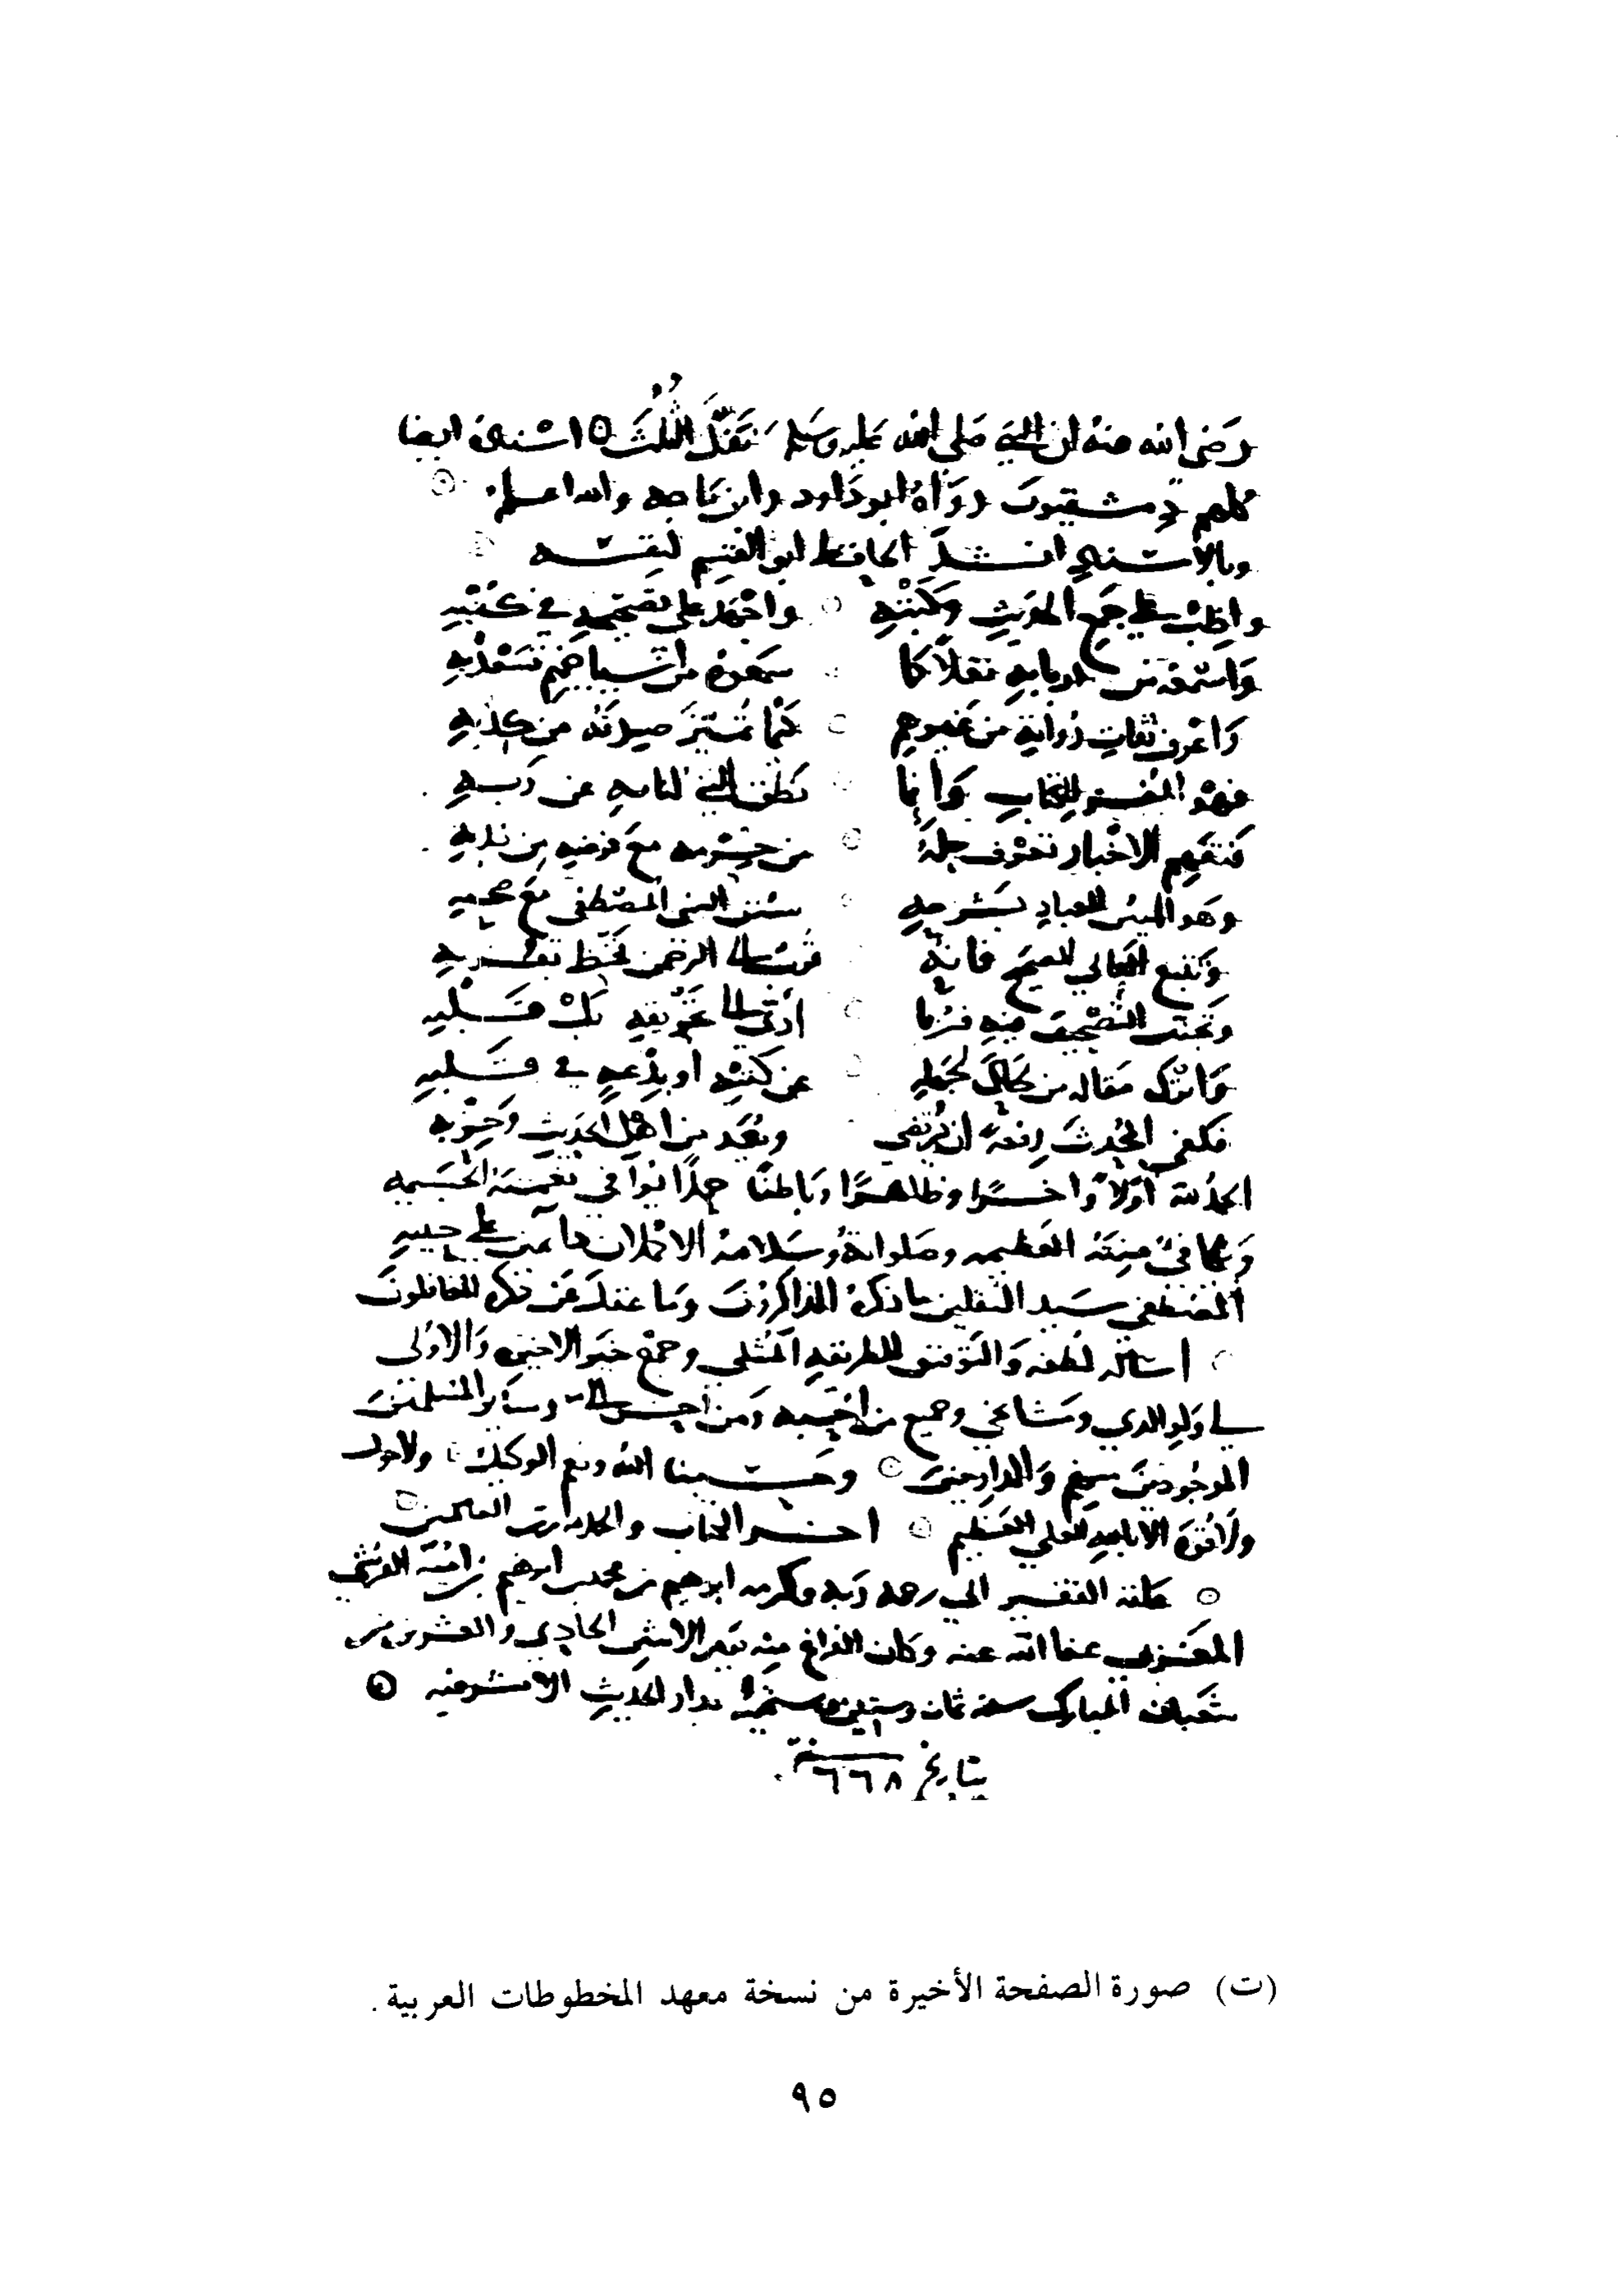 رضي الله عنه ان النبي صلى الله عليه وسلم نفل الثلث اسنادى ايضا
كلهم دمشقيون رواه ابو داود وابن ماجه والله اعلم
وبالاسناد انشد الحافظ ابو القسم لنفسه
واظب على جمع الحديث وكتبه واجهد على تصحيحه في كتبه
واسمعه من اربابه نقلا كما سمعوه من اشياخهم تسعد به
واعرف ثقات رواته من غيرهم كيما تميز صدقه من كذبه
فهو المفسر للكتاب وانما نطق النبي لنا به عن ربه
فتفهم الاخبار تعرف حله من حرمه مع فرضه من ندبه
وهو المبين للعباد بشرحه سنن النبي المصطفى مع صحبه
وتتبع العالي الصحيح فانه قرب الى الرحمن تحظ بقربه
وتجنب التصحيف فيه فربما ادى الى تحريفه بل قلبه
واترك مقاله من لحاك لجهله عن كتبه او بدعه في قلبه
فكفى المحدث رفعة ان يرتضى ويعد من اهل الحديث وحزبه
الحمد لله اولا واخرا وظاهرا وباطنا حمدا يوافي نعمته الجسيمه
ويكافئ منته العظيمه وصلواته وسلامه الاكملان على حبيبه
المصطفى سيد الثقلين ما ذكره الذاكرون وما غفل عن ذكره الغافلون
اسأله لطفه والتوفيق للطريقه المثلى وجمع خير الاخرى والاولى
لي ولوالدي ومشايخي وجميع من احبه ومن احسن الي وسائر المسلمين
الموجودين منهم والدارجين وحسبنا الله ونعم الوكيل ولا حول
ولا قوة الا بالله العلي العظيم اخر الكتاب والحمد لله رب العلمين
علقه الفقير الى رحمة ربه وكرمه ابرهيم بن محمد بن ابرهيم القرشي
عفا الله عنه وكان الفراغ منه يوم الاثنين الحادي والعشرين من
شعبان المبارك سنه ثمان وستين وستمئة بدار الحديث الاشرفيه
بتاريخ سنة ٦٦٨
(ت) صورة الصفحة الأخيرة من نسخة معهد المخطوطات العربية.
٩٥